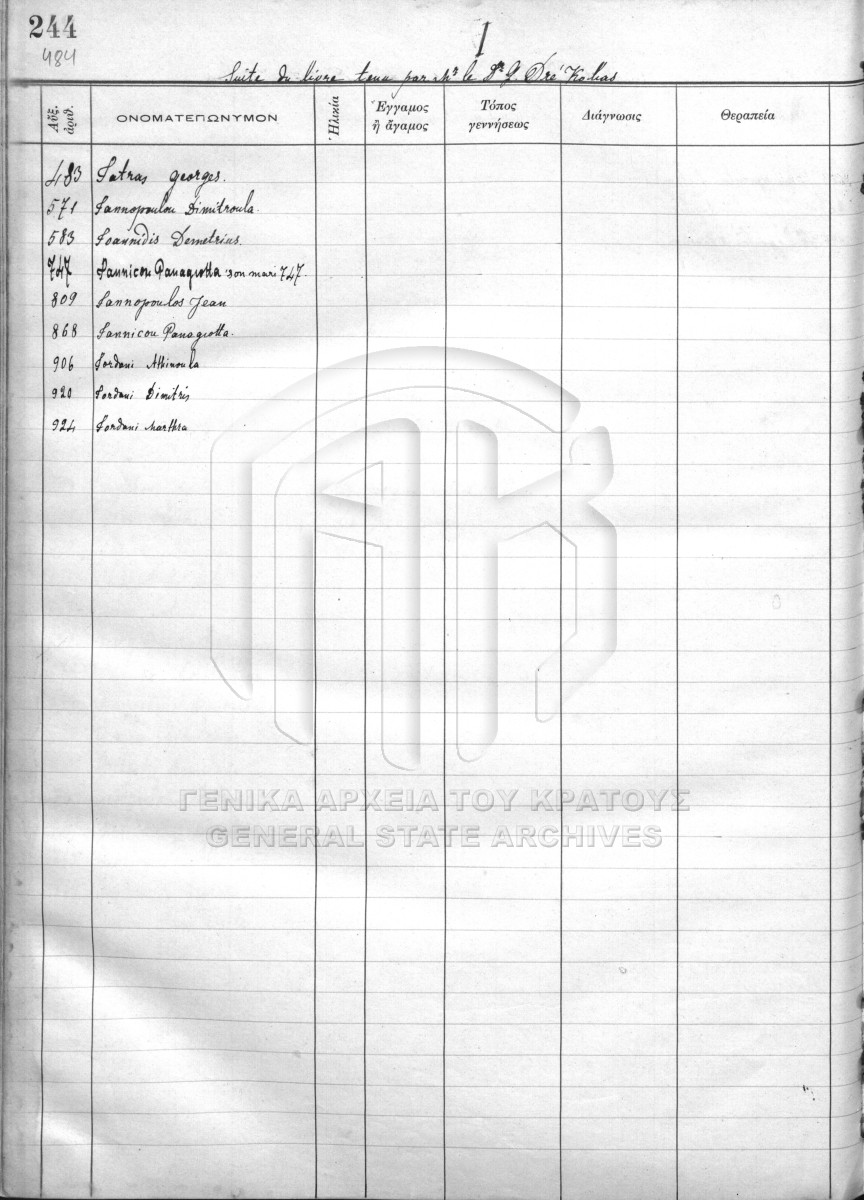 244
484
I
Suite du livre tenu par Mr le Dr G. Dré Kolias
Αὔξ. ἀριθ.
ΟΝΟΜΑΤΕΠΩΝΥΜΟΝ
Ἡλικία
Ἔγγαμος ἢ ἄγαμος
Τόπος γεννήσεως
Διάγνωσις
Θεραπεία
483 Iatras georges.
571 Iannopoulou Dimitroula.
583 Ioannidis Demetrius.
747 Iannicou Panagiotta son mari 747.
809 Iannopoulos Jean
868 Iannicou Panagiotta.
906 Iordani Athinoula
920 Iordani Dimitris
924 Iordani Marthra
ΓΕΝΙΚΑ ΑΡΧΕΙΑ ΤΟΥ ΚΡΑΤΟΥΣ
GENERAL STATE ARCHIVES